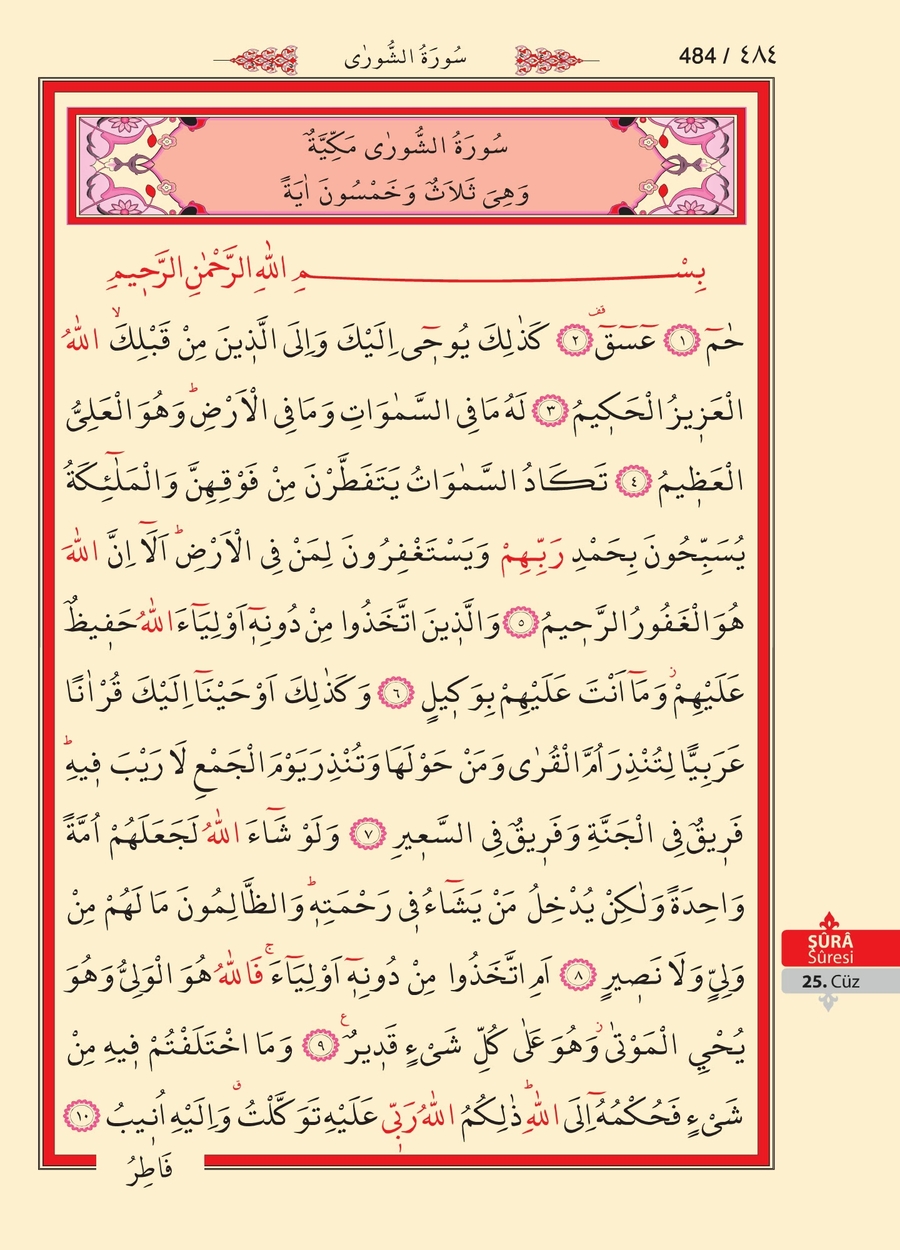 سُورَةُ الشُّورٰى
484 / ٤٨٤
سُورَةُ الشُّورٰى مَكِّيَّةٌ
وَهِىَ ثَلَاثٌ وَخَمْسُونَ اٰيَةً
بِسْمِ اللّٰهِ الرَّحْمٰنِ الرَّحٖيمِ
حٰمٓ ﴿١﴾ عٓسٓقٓ ﴿٢﴾ كَذٰلِكَ يُوحٖٓى اِلَيْكَ وَاِلَى الَّذٖينَ مِنْ قَبْلِكَۙ اللّٰهُ
الْعَزٖيزُ الْحَكٖيمُ ﴿٣﴾ لَهُ مَا فِى السَّمٰوَاتِ وَمَا فِى الْاَرْضِؕ وَهُوَ الْعَلِىُّ
الْعَظٖيمُ ﴿٤﴾ تَكَادُ السَّمٰوَاتُ يَتَفَطَّرْنَ مِنْ فَوْقِهِنَّ وَالْمَلٰٓئِكَةُ
يُسَبِّحُونَ بِحَمْدِ رَبِّهِمْ وَيَسْتَغْفِرُونَ لِمَنْ فِى الْاَرْضِؕ اَلَٓا اِنَّ اللّٰهَ
هُوَ الْغَفُورُ الرَّحٖيمُ ﴿٥﴾ وَالَّذٖينَ اتَّخَذُوا مِنْ دُونِهٖٓ اَوْلِيَٓاءَ اللّٰهُ حَفٖيظٌ
عَلَيْهِمْؗ وَمَٓا اَنْتَ عَلَيْهِمْ بِوَكٖيلٍ ﴿٦﴾ وَكَذٰلِكَ اَوْحَيْنَٓا اِلَيْكَ قُرْاٰنًا
عَرَبِيًّا لِتُنْذِرَ اُمَّ الْقُرٰى وَمَنْ حَوْلَهَا وَتُنْذِرَ يَوْمَ الْجَمْعِ لَا رَيْبَ فٖيهِؕ
فَرٖيقٌ فِى الْجَنَّةِ وَفَرٖيقٌ فِى السَّعٖيرِ ﴿٧﴾ وَلَوْ شَٓاءَ اللّٰهُ لَجَعَلَهُمْ اُمَّةً
وَاحِدَةً وَلٰكِنْ يُدْخِلُ مَنْ يَشَٓاءُ فٖى رَحْمَتِهٖؕ وَالظَّالِمُونَ مَا لَهُمْ مِنْ
وَلِىٍّ وَلَا نَصٖيرٍ ﴿٨﴾ اَمِ اتَّخَذُوا مِنْ دُونِهٖٓ اَوْلِيَٓاءَۚ فَاللّٰهُ هُوَ الْوَلِىُّ وَهُوَ
يُحْيِ الْمَوْتٰىؗ وَهُوَ عَلٰى كُلِّ شَىْءٍ قَدٖيرٌ ﴿٩﴾ وَمَا اخْتَلَفْتُمْ فٖيهِ مِنْ
شَىْءٍ فَحُكْمُهُٓ اِلَى اللّٰهِؕ ذٰلِكُمُ اللّٰهُ رَبّٖى عَلَيْهِ تَوَكَّلْتُۗ وَاِلَيْهِ اُنٖيبُ ﴿١٠﴾
فَاطِرُ
ŞÛRÂ
Sûresi
25. Cüz